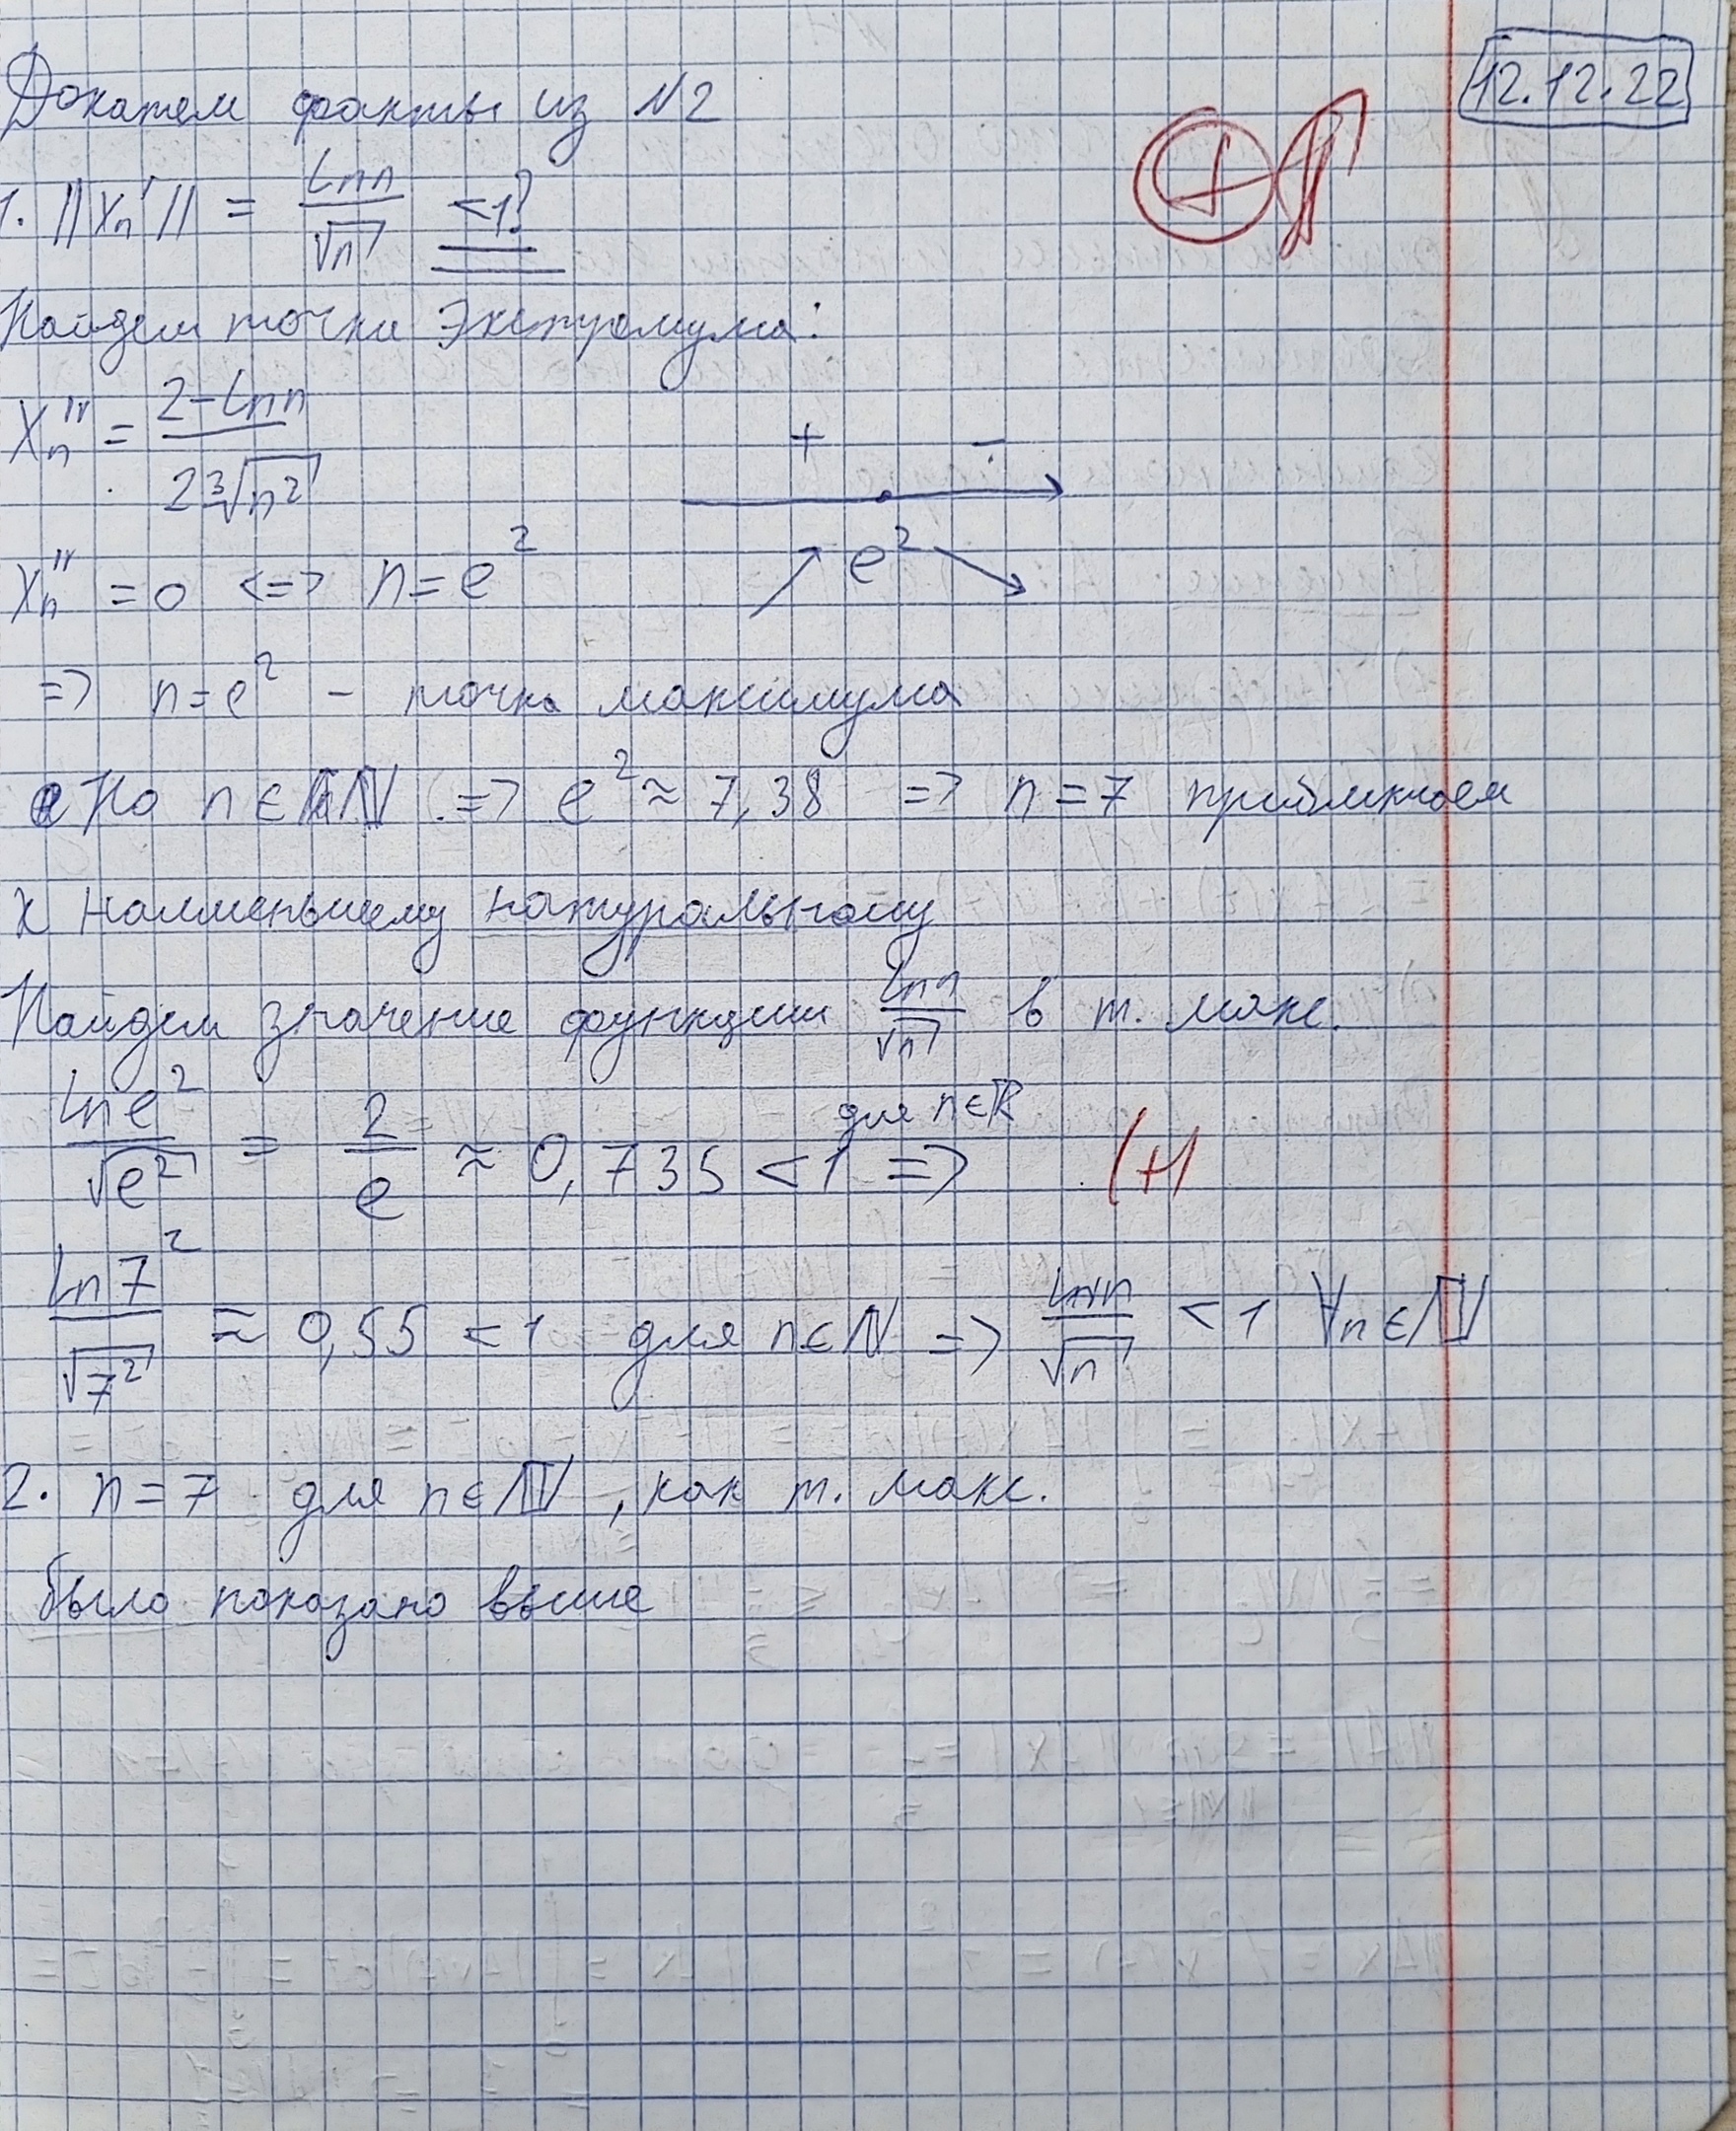 12.12.22
Докажем факты из №2
1. ||Xₙ'|| = ln n / √n < 1?
Найдем точки экстремума:
Xₙ'' = (2 - ln n) / (2 ∛(n²))
+ -
Xₙ'' = 0 <=> n = e²
↗ e² ↘
=> n = e² - точка максимума
Но n ∈ ℕ => e² ≈ 7,38 => n = 7 приближаем
к наименьшему натуральному
Найдем значение функции ln n / √n в т. макс.
ln e² / √(e²) = 2 / e ≈ 0,735 < 1 => для n ∈ ℝ (+)
ln 7² / √(7²) ≈ 0,55 < 1 для n ∈ ℕ => ln n / √n < 1 ∀n ∈ ℕ
2. n = 7 для n ∈ ℕ, как т. макс.
было показано выше